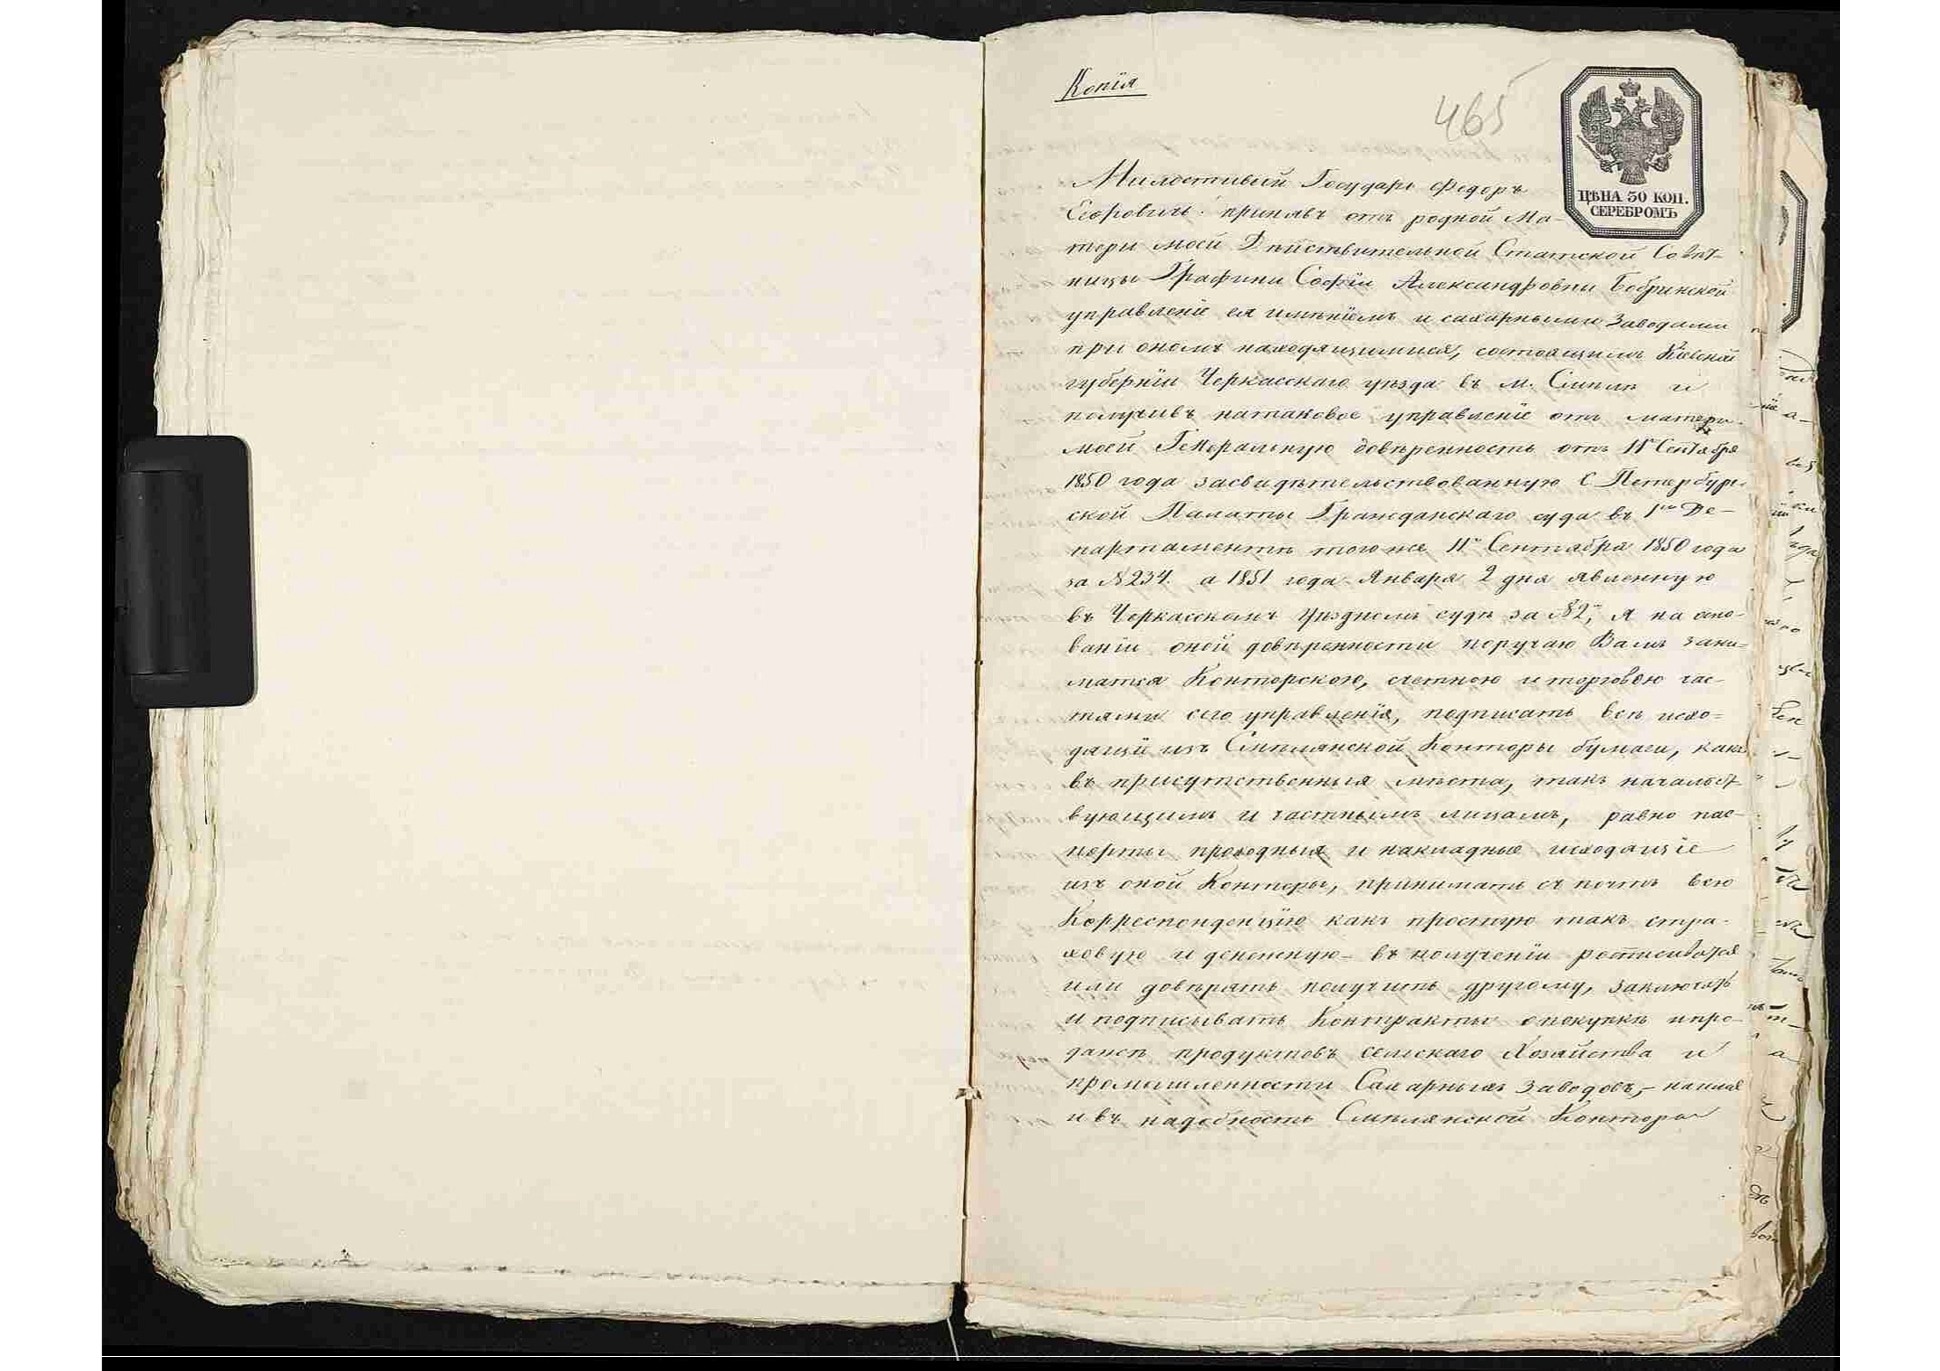 Копія
465
ЦѢНА 50 КОП.
СЕРЕБРОМЪ
Милостивый Государь Федоръ
Егоровичь! принявъ отъ родной Ма-
тери моей Дѣйствительной Статской Совѣт-
ницы Графини Софіи Александровны Бобринской
управленіе ея имѣніемъ и сахарными Заводами
при ономъ находящимися, состоящимъ Кіевской
губерніи Черкасскаго уѣзда въ м. Смѣлѣ и
получивъ натаковое управленіе отъ матери
моей Генеральную довѣренность отъ 11го Сентября
1850 года засвидѣтельствованную С. Петербург-
ской Палаты Гражданскаго суда въ 1мъ Де-
партаментѣ тогоже 11го Сентября 1850 года
за №234. а 1851 года Января 2 дня явленную
въ Черкасскомъ Уѣздномъ судѣ за №2, я на осно-
ваніи оной довѣренности поручаю Вамъ зани-
матся Конторскою, счетною и торговою час-
тями сего управленія, подписать всѣ исхо=
дящіи изъ Смѣлянской Конторы бумаги, какъ
въ присутственныя мѣста, такъ начальст-
вующимъ и частнымъ лицамъ, равно пас-
порты проходныя и накладные исходящіе
изъ оной Конторы, принимать съ почтъ всю
Корреспонденцію какъ простую такъ стра-
ховую и денежную - въ полученіи росписыватся
или довѣрять получить другому, заключать
и подписывать Контракты опокупкѣ ипро-
дажѣ продуктовъ сельскаго Хозяйства и
промышленности Сахарныхъ Заводовъ, - наймѣ
ивъ надобность Смѣлянской Конторы